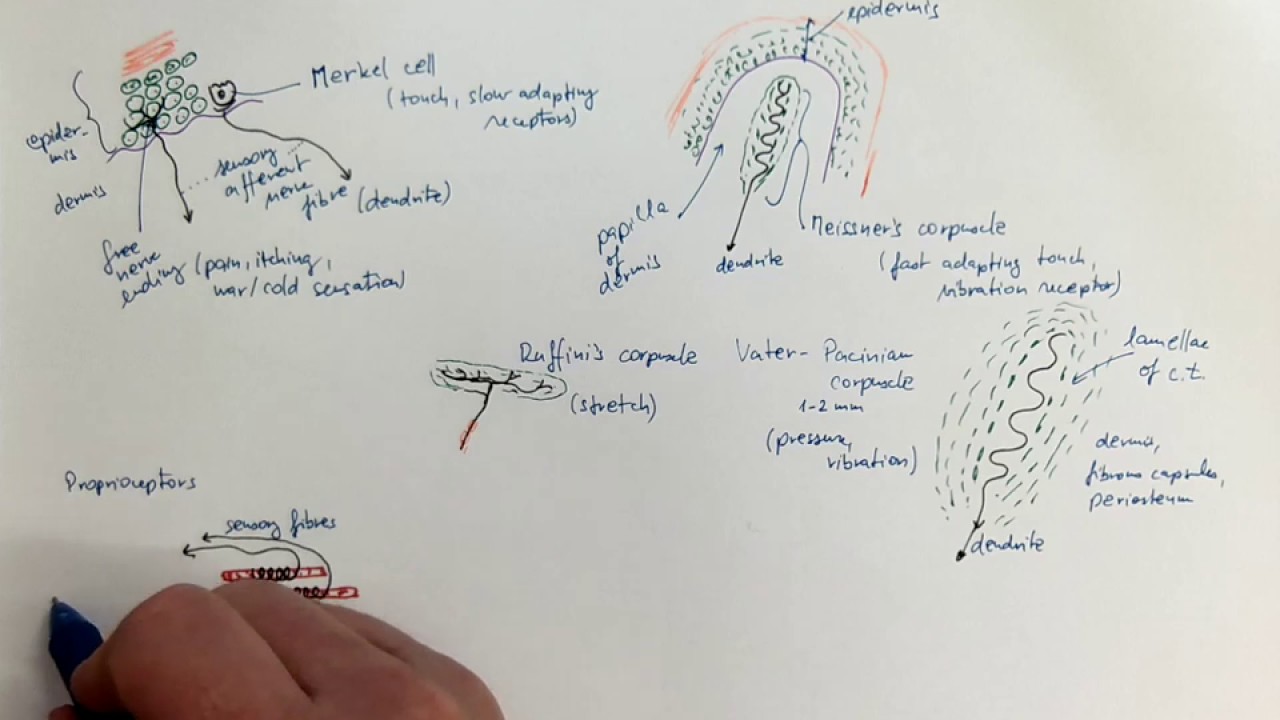 epidermis
Merkel cell
(touch, slow adapting
receptors)
epider-
mis
dermis
sensory
afferent
nerve
fibre (dendrite)
free
nerve
ending (pain, itching,
war/cold sensation)
papilla
of
dermis
dendrite
Meissner's corpuscle
(fast adapting touch,
vibration receptor)
Ruffini's corpuscle
(stretch)
Vater-Pacinian
corpuscle
1-2 mm
(pressure,
vibration)
lamellae
of c.t.
dermis,
fibrous capsules,
periosteum
dendrite
Proprioceptors
sensory fibres